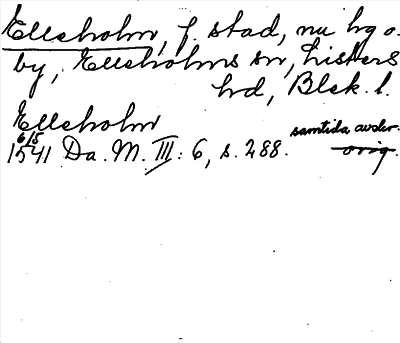 Elleholm, f. stad, nu hg o.
by, Elleholms sn, Listers
hd, Blek. l.
Elleholm
6/5
1541 Da. M. III: 6, s. 288.
samtida avskr.
orig.